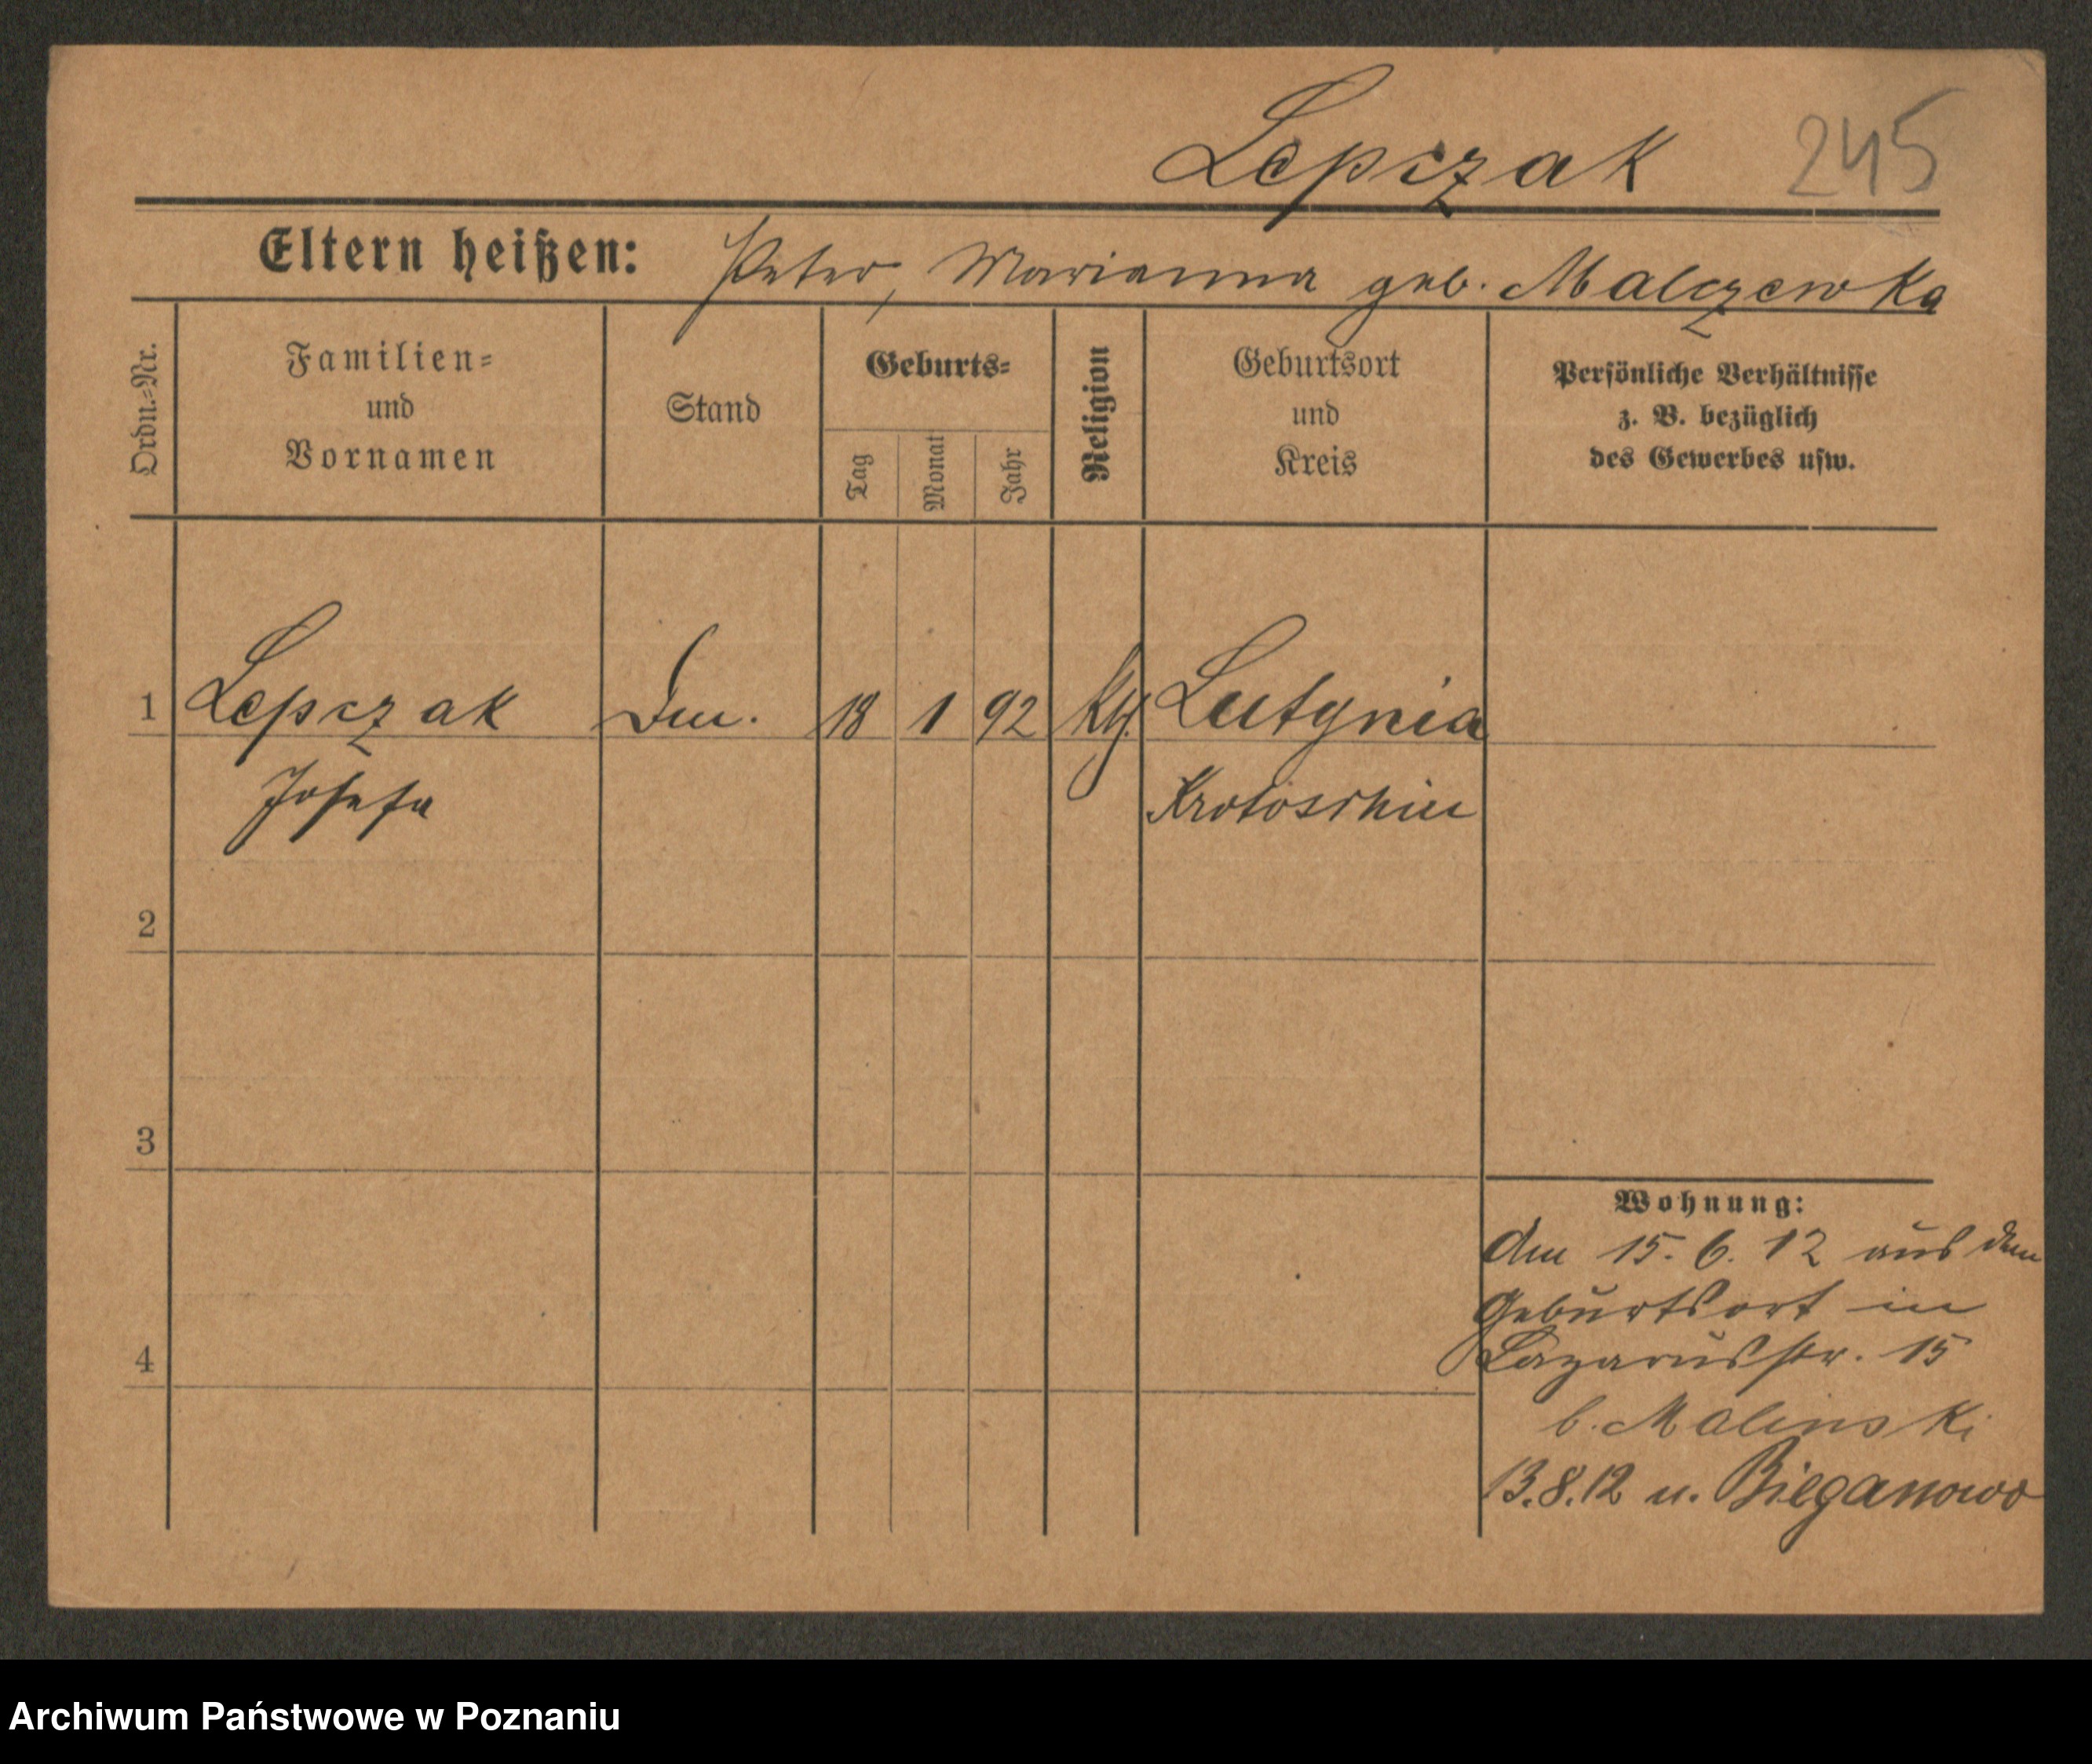 Lepczak 245
Eltern heißen: Peter, Marianna geb. Malczewka
Ordn.=Nr.
Familien=
und
Vornamen
Stand
Geburts=
Tag
Monat
Jahr
Religion
Geburtsort
und
Kreis
Persönliche Verhältnisse
z. B. bezüglich
des Gewerbes usw.
1 Lepczak 18 1 92 Kth. Lutynia
Josefa Krotoschin
2
3
4
Wohnung:
Am 15. 6. 12 aus dem
Geburtsort in
Lazarusstr. 15
b. Malinski
13.8.12 n. Bieganowo
Archiwum Państwowe w Poznaniu